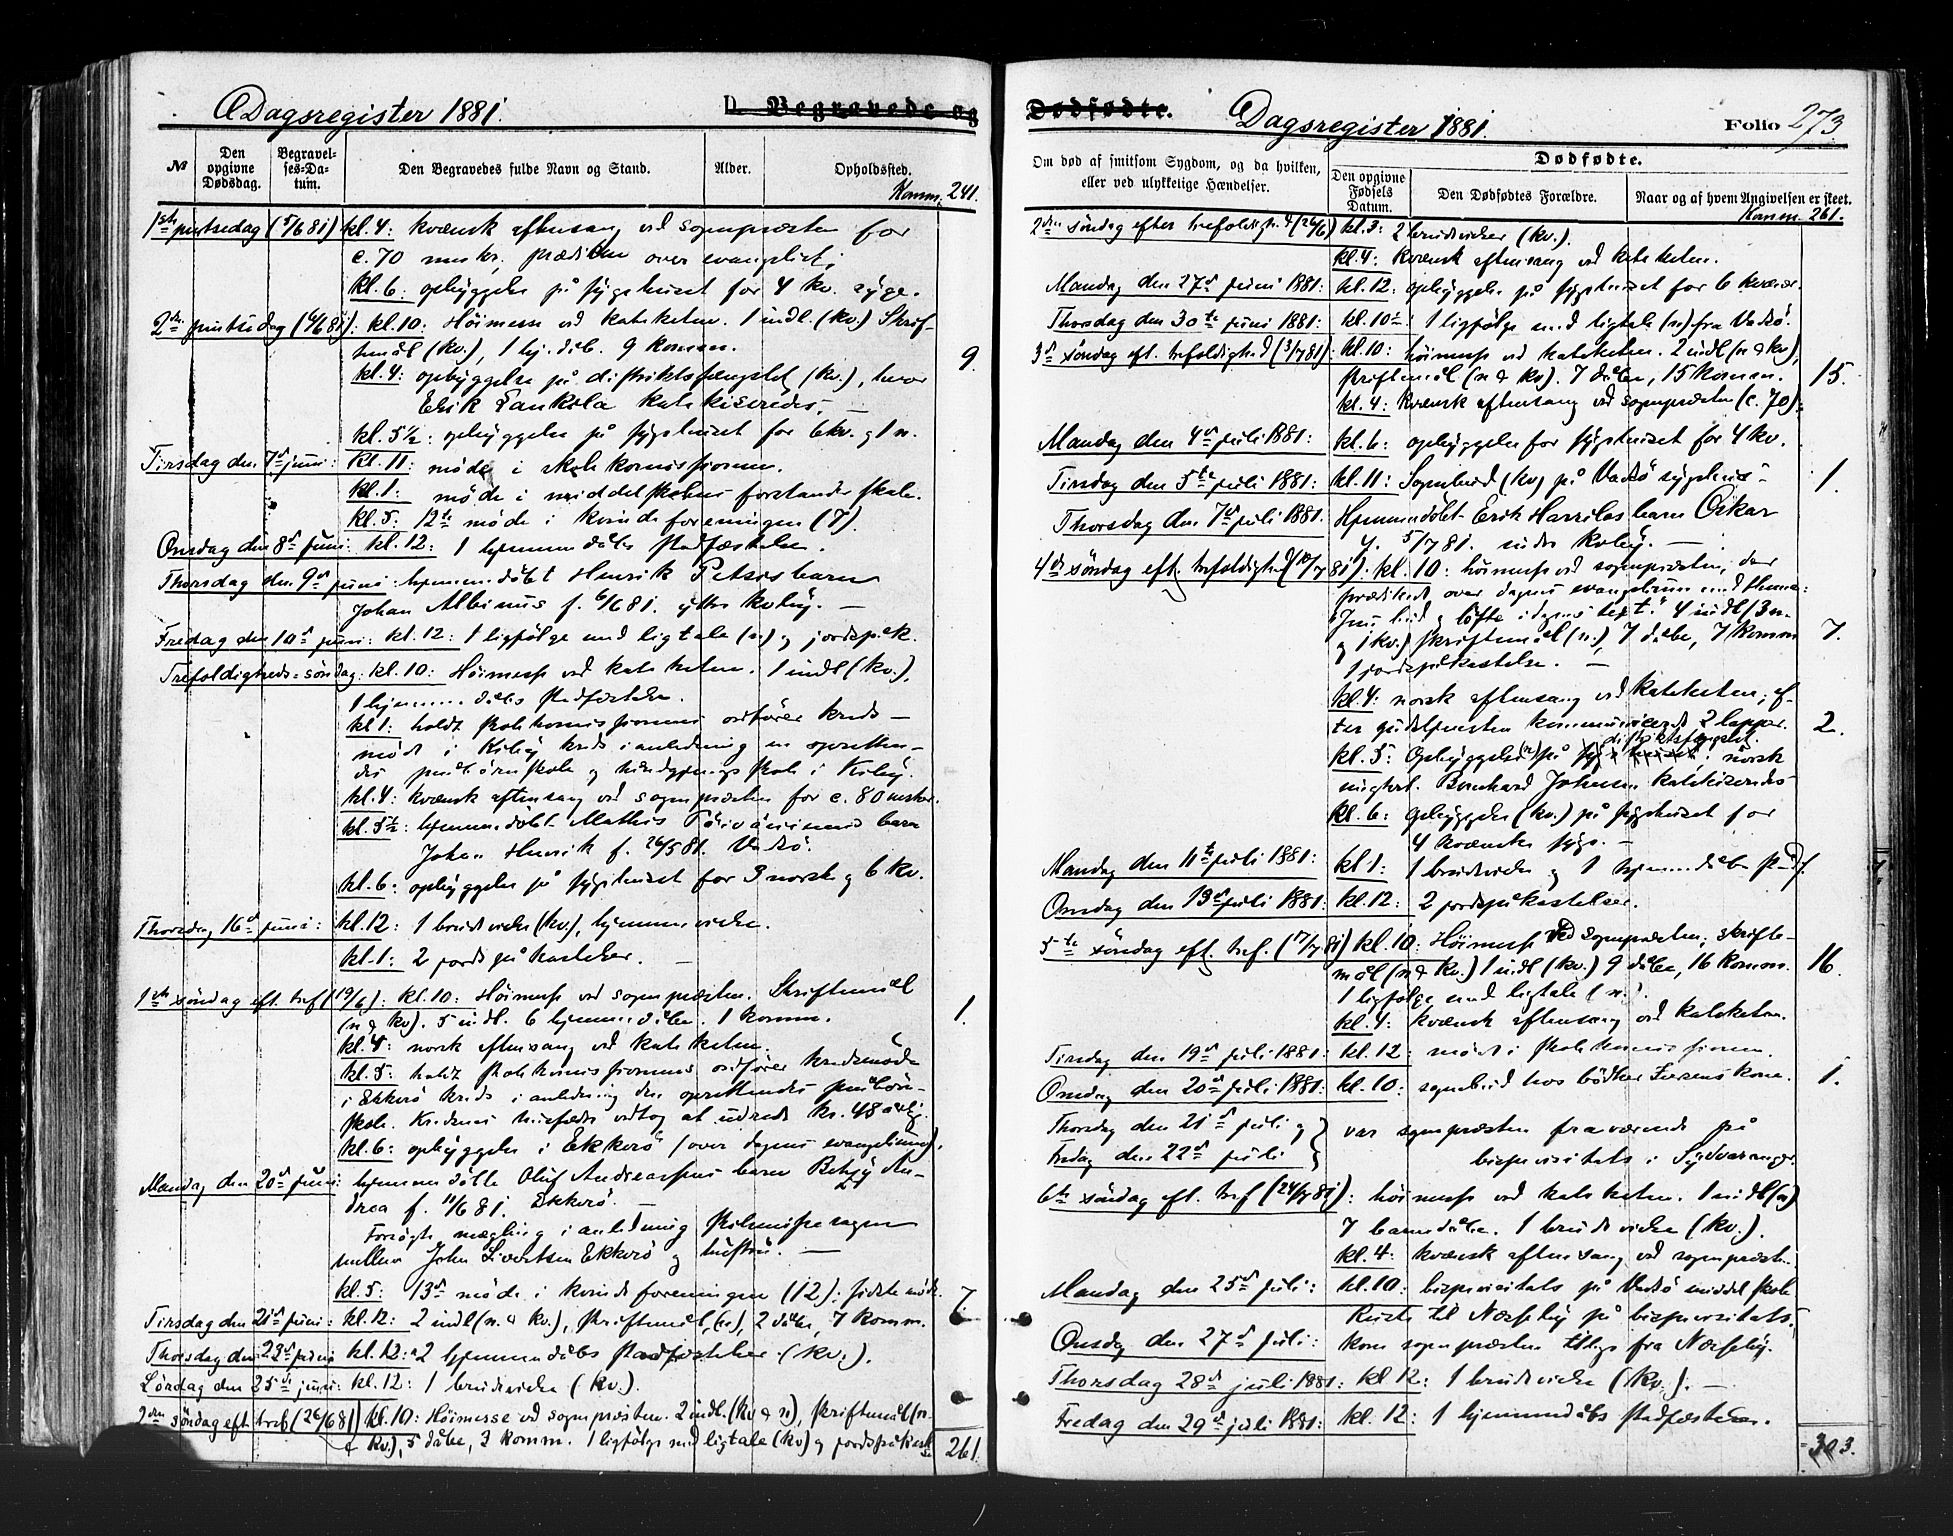 Dagsregister 1881.
D. Begravede og
No
Den opgivne Dødsdag.
Begravelses-Datum.
Den Begravedes fulde Navn og Stand.
Alder.
Opholdssted.
Komm. 241.
1ste pintsedag (5/6 81) kl. 4: kvænsk aftensang ved sognepræsten for
c. 70 mskr. prædiken over evangeliet;
kl. 6: opbyggelse på sygehuset for 4 kv. syge.
2den pintsedag (6/6 81): kl. 10: Høimesse ved kateketen. 1 indl. (kv.) Skrif-
temål (kv.), 1 hj. dåb. 9 komm. 9.
kl. 4: opbyggelse på distriktsfængslet (kv.), hvor
Erik Lankila katekiseredes.
kl. 5½: opbyggelse på sygehuset for 6 kv. og 1 n.
Tirsdag den 7de juni: kl. 11: møde i skolekomissionen.
kl. 1: møde i middelskolens forstanderskab.
kl. 5: 12te møde i kvindeforeningen (7).
Onsdag den 8de juni: kl. 12: 1 hjemmedåbs stadfæstelse.
Thorsdag den 9de juni: hjemmedøbt Henrik barn
Johan Albinus f. 6/6 81. ytre Kiby.
Fredag den 10de juni: kl. 12: 1 ligfølge med ligtale (n.) og jordspåk.
Trefoldigheds-søndag: kl. 10: Høimesse ved kateketen. 1 indl (kv.),
1 hjemmedåbs stadfæstelse.
kl 1: holdt skolekomissionens ordfører kreds-
møde i Kiby kreds i anledning en oprettendes
småbørnsskole og håndgjerningsskole i Kiby.
kl. 4: kvænsk aftensang ved sognepræsten for c. 80 mskr.
kl. 5½: hjemmedøbt Mathis barn
Johan Henrik f. 26/5 81. Vadsö.
kl. 6: opbyggelse på sygehuset for 3 norske og 6 kv.
Thorsdag 16de juni: kl. 12: 1 brudevielse (kv.), hjemmevielse.
kl. 1: 2 jordspåkastelser.
1ste søndag eft. tref (19/6): kl. 10: Høimesse ved sognepræsten. Skriftemål
(n & kv). 5 indl. 6 hjemmedåbe. 1 komm. 1.
kl. 4: norsk aftensang ved kateketen.
kl. 5: holdt skolekomissionens ordfører kredsmøde
i Ekkerö kreds i anledning den oprettendes småbørn-
skole. Kredsens husfædre vedtog at udrede kr. 48 årlig.
kl. 6: opbyggelse i Ekkerö (over dagens evangelium).
Mandag den 20de juni: hjemmedøbte Oluf Andreassens barn Betzy An-
drea f. 11/6 81. Ekkerö.
Forsøgte mægling i anledning skilsmissesagen
mellem John Sivertsen Ekkerö og hustru.
kl. 5: 13de møde i kvindeforeningen (12): sidste møde.
Tirsdag den 21de juni: kl. 12: 2 indl (n. & kv.), skriftemål, (n), 2 dåbe, 7 komm. 7.
Thorsdag den 23de juni kl. 12: 2 hjemmedåbs stadfæstelser. (kv.).
Lördag den 25de juni: kl. 12: 1 brudevielse (kv.).
2den søndag eft tref (26/6 81) kl. 10: Høimesse ved sognepræsten. 2 indl. (kv & n), skriftemål (n.
& kv), 5 dåbe, 3 komm. 1 ligfølge med ligtale (kv) og jordspåkastelse
261.
Dødfødte.
Dagsregister 1881.
Folio 273
Om død af smitsom Sygdom, og da hvilken, eller ved ulykkelige Hændelser.
Dødfødte.
Den opgivne Fødsels Datum.
Den Dødfødtes Forældre.
Naar og af hvem Angivelsen er skeet.
Komm. 261.
2den søndag efter trefoldigh. (26/6) kl. 3: 2 brudevielser (kv.).
kl. 4: kvænsk aftensang ved kateketen.
Mandag den 27de juni 1881: kl. 12: opbyggelse på sygehuset for 6 kvæner.
Thorsdag den 30te juni 1881: kl. 10½ 1 ligfølge med ligtale (n) fra Vadsö.
3de søndag eft. trefoldighed (3/7 81): kl. 10: høimesse ved kateketen. 2 indl (n & kv),
skriftemål (n & kv). 7 dåbe, 15 komm. 15.
kl. 4: kvænsk aftensang ved sognepræsten (c. 70).
Mandag den 4de juli 1881: kl. 6: opbyggelse for sygehuset for 4 kv.
Tirsdag den 5te juli 1881: kl. 11: Sognebud (kv) på Vadsö sygehus 1.
Thorsdag den 7de juli 1881. Hjemmedøbt Erik Harrilas barn Oskar
f. 5/7 81. indre Kiby.
4de søndag eft. trefoldighed (10/7 81): kl. 10: høimesse ved sognepræsten, der
prædikede over dagens evangelium med thema:
"Jesu bud og løfte i dagens text." 4 indl (3 n
og 1 kv.) skriftemål (n.), 7 dåbe, 7 komm 7.
1 jordspåkastelse.
kl. 4: norsk aftensang ved kateketen; ef-
ter gudstjenesten kommunicerede 2 lapper. 2.
kl. 5: Opbyggelse (n) på distriktsfængslet. norsk
Bernhard Johnsen katekiseredes
kl. 6: Opbyggelse (kv.) på sygehuset for
4 kvænske syge.
Mandag den 11te juli 1881: kl 1: 1 brudevielse og 1 hjemmedåbs stadf.
Onsdag den 13de juli 1881: kl. 12: 2 jordspåkastelser.
5te søndag eft. tref. (17/7 81) kl. 10: Høimesse ved sognepræsten; skrifte-
mål (n & kv.) 1 indl (kv.) 9 dåbe, 16 komm. 16.
1 ligfølge med ligtale (n.).
kl. 4: kvænsk aftensang ved kateketen.
Tirsdag den 19de juli 1881: kl. 12: møde i skolekomissionen.
Onsdag den 20de juli 1881: kl. 10: sognebud hos bödker Iversens kone. 1.
Thorsdag den 21de juli og
Fredag den 22de juli } var sognepræsten fraværende på
bispevisitats i Sydvaranger.
6te søndag eft. tref (24/7 81): høimesse ved kateketen. 1 indl (n)
7 barnedåbe. 1 brudevielse (kv.).
kl. 4: kvænsk aftensang ved sognepræsten.
Mandag den 25de juli: kl. 10: bispevisitats på Vadsö middelskole
Reiste til Næsseby på bispevisitats.
Onsdag den 27de juli: kom sognepræsten tilbage fra Næsseby.
Thorsdag 28de juli 1881: kl 12: 1 brudevielse (kv.).
Fredag den 29de juli 1881: kl. 12: 1 hjemmedåbs stadfæstelse.
303.